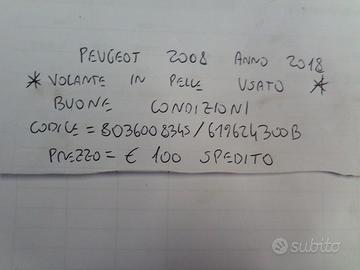 PEUGEOT 2008 ANNO 2018
* VOLANTE IN PELLE USATO *
BUONE CONDIZIONI
CODICE = 8036008345/619624300B
PREZZO = € 100 SPEDITO
subito